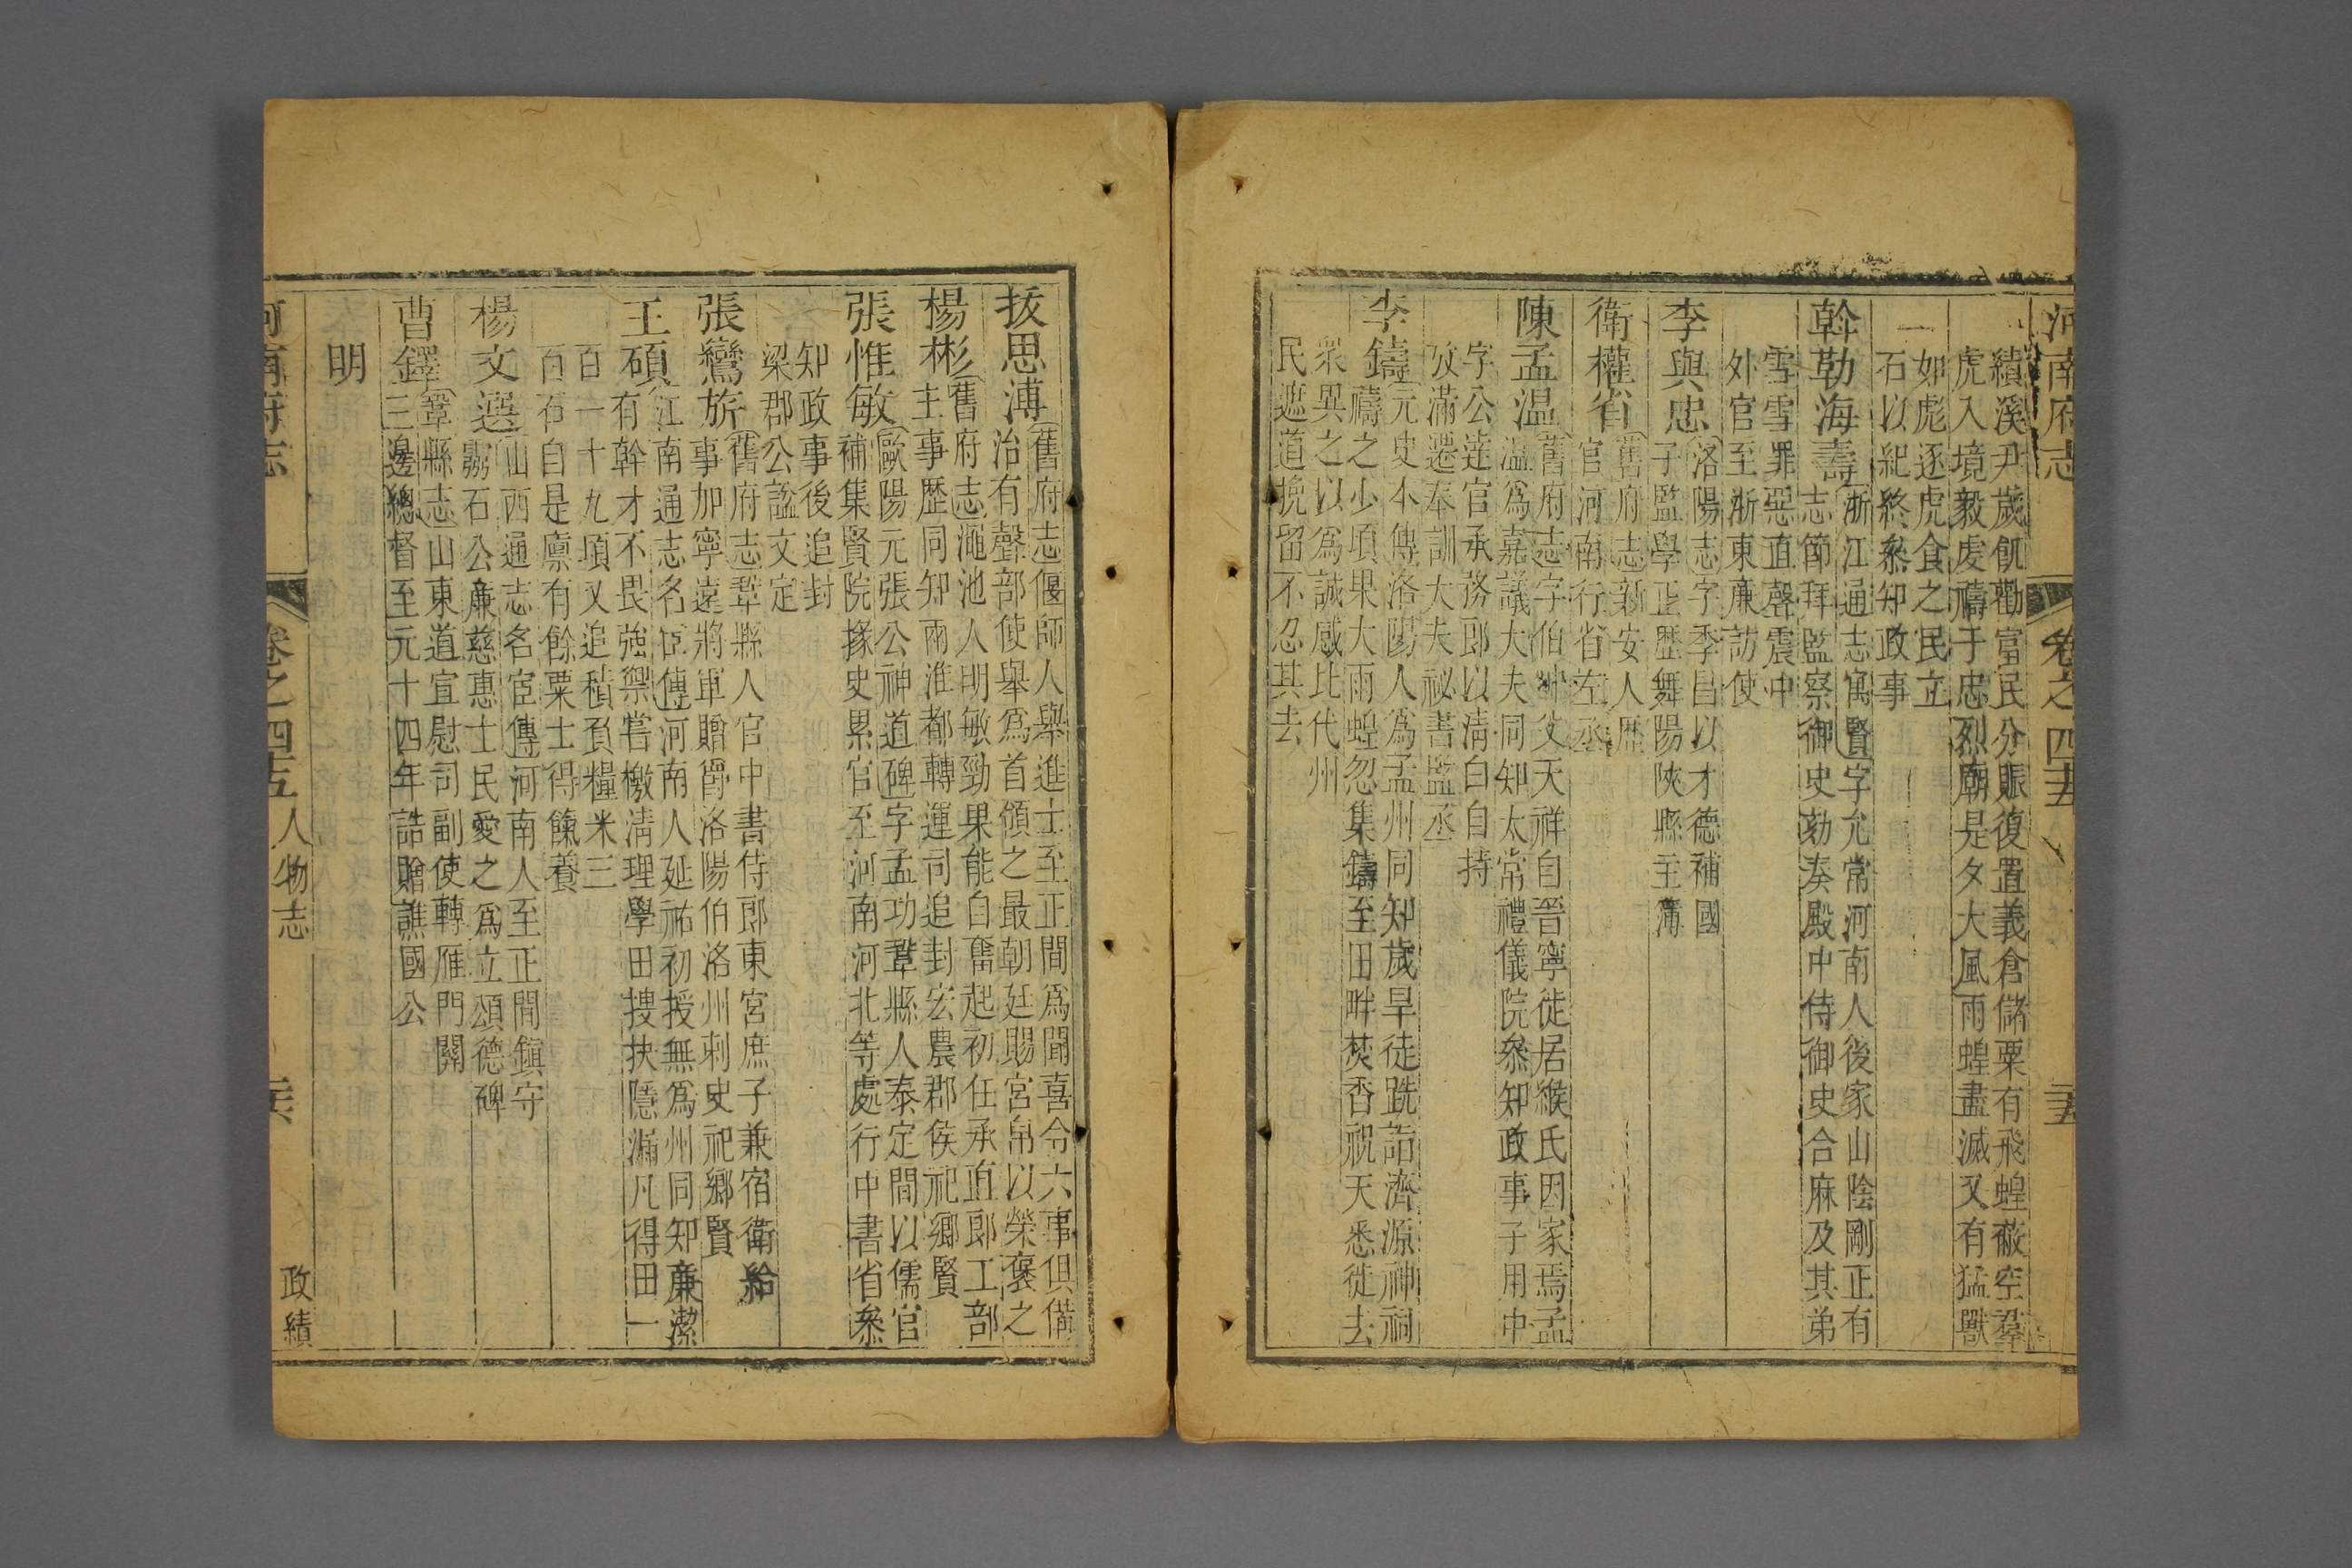 河南府志
卷之四十五
三五
績溪尹歲飢勸富民分賑復置義倉儲粟有飛蝗蔽空羣
虎入境毅虔禱于忠烈廟是夕大風雨蝗盡滅又有猛獸
如彪逐虎食之民立
石以紀終叅知政事
幹勒海壽
浙江通志寓賢字允常河南人後家山陰剛正有
志節拜監察御史劾奏殿中侍御史合麻及其弟
雪雪罪惡直聲震中
外官至浙東廉訪使
李與忠
洛陽志字季昌以才德補國
子監學正歷舞陽陝縣主簿
衛權省
舊府志新安人歷
官河南行省左丞
陳孟温
舊府志字伯冲父天祥自晉寧徙居緱氏因家焉孟
温爲嘉議大夫同知太常禮儀院叅知政事子用中
字公達官承務郎以清白自持
攷滿遷奉訓大夫祕書監丞
李鑄
元史本傳洛陽人爲孟州同知歲旱徒跣詣濟源神祠
禱之少頃果大雨蝗忽集鑄至田畔焚香祝天悉徙去
衆異之以爲誠感比代州
民遮道挽留不忍其去
拔思溥
舊府志偃師人舉進士至正間爲聞喜令六事俱備
治有聲部使舉爲首領之最朝廷賜宮帛以榮褒之
楊彬
舊府志澠池人明敏勁果能自奮起初任承直郎工部
主事歷同知兩淮都轉運司追封宏農郡侯祀鄉賢
張惟敏
歐陽元張公神道碑字孟功鞏縣人泰定間以儒官
補集賢院掾史累官至河南河北等處行中書省叅
知政事後追封
梁郡公謚文定
張鸞旂
舊府志鞏縣人官中書侍郎東宮庶子兼宿衛給
事加寧遠將軍贈爵洛陽伯洛州刺史祀鄉賢
王碩
江南通志名臣傳河南人延祐初授無爲州同知廉潔
有幹才不畏强禦嘗檄清理學田搜抉隱漏凡得田一
百一十九頃又追積負糧米三
百石自是廪有餘粟士得餼養
楊文選
山西通志名宦傳河南人至正間鎮守
霸石公廉慈惠士民愛之爲立頌德碑
曹鐸
鞏縣志山東道宣慰司副使轉雁門關
三邊總督至元十四年誥贈譙國公
明
河南府志
卷之四十五
人物志
政績